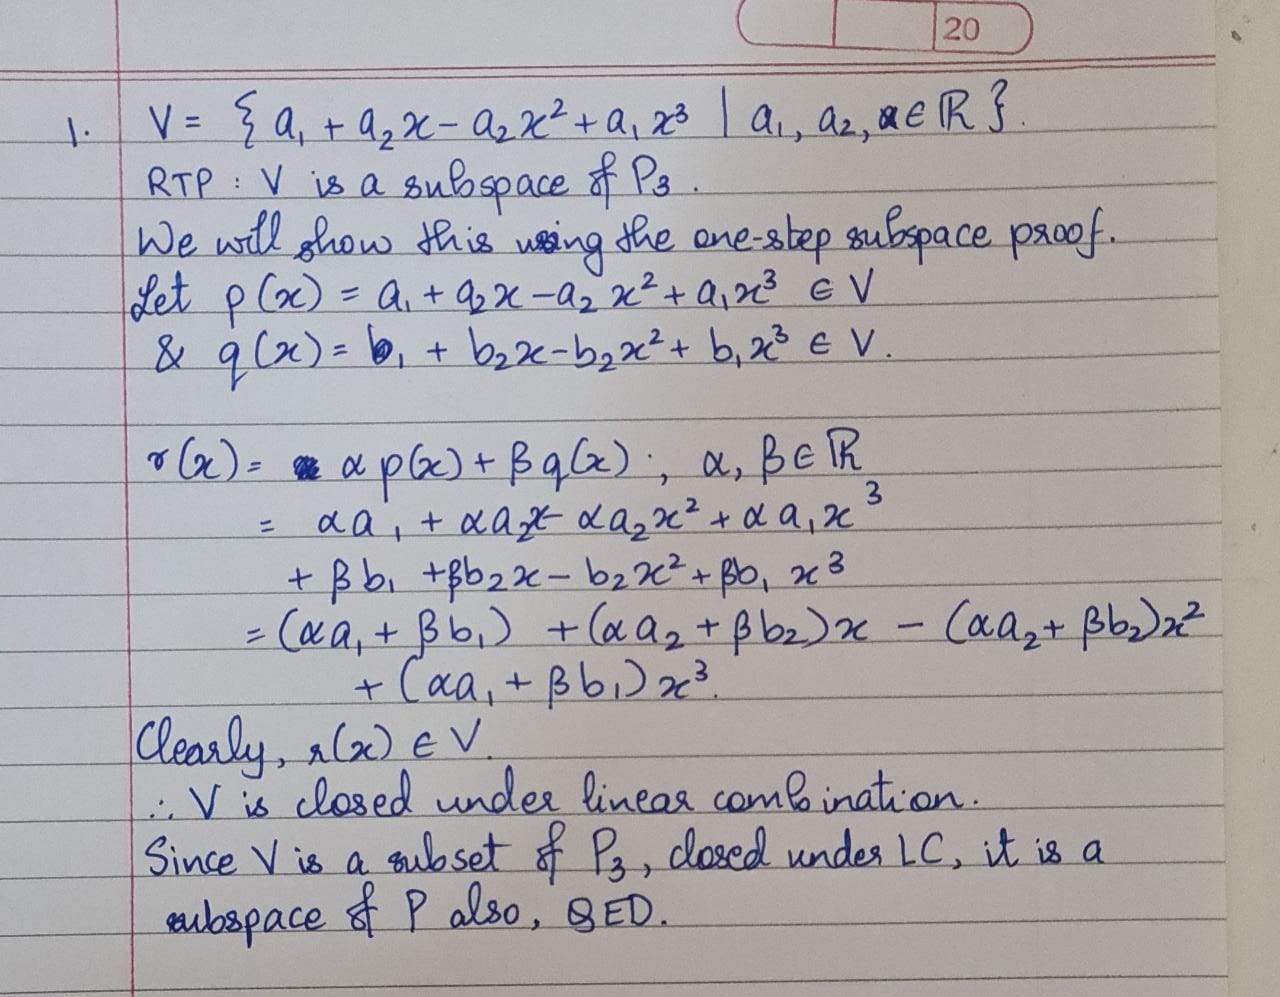 20
1. V = { a₁ + a₂x - a₂x² + a₁x³ | a₁, a₂, ∈ ℝ }.
RTP : V is a subspace of P₃.
We will show this using the one-step subspace proof.
Let p(x) = a₁ + a₂x - a₂x² + a₁x³ ∈ V
& q(x) = b₁ + b₂x - b₂x² + b₁x³ ∈ V.
r(x) = α p(x) + β q(x) ; α, β ∈ ℝ
= αa₁ + αa₂x - αa₂x² + αa₁x³
+ βb₁ + βb₂x - b₂x² + βb₁x³
= (αa₁ + βb₁) + (αa₂ + βb₂)x - (αa₂ + βb₂)x²
+ (αa₁ + βb₁)x³.
Clearly, r(x) ∈ V.
∴ V is closed under linear combination.
Since V is a subset of P₃, closed under LC, it is a
subspace of P also, QED.